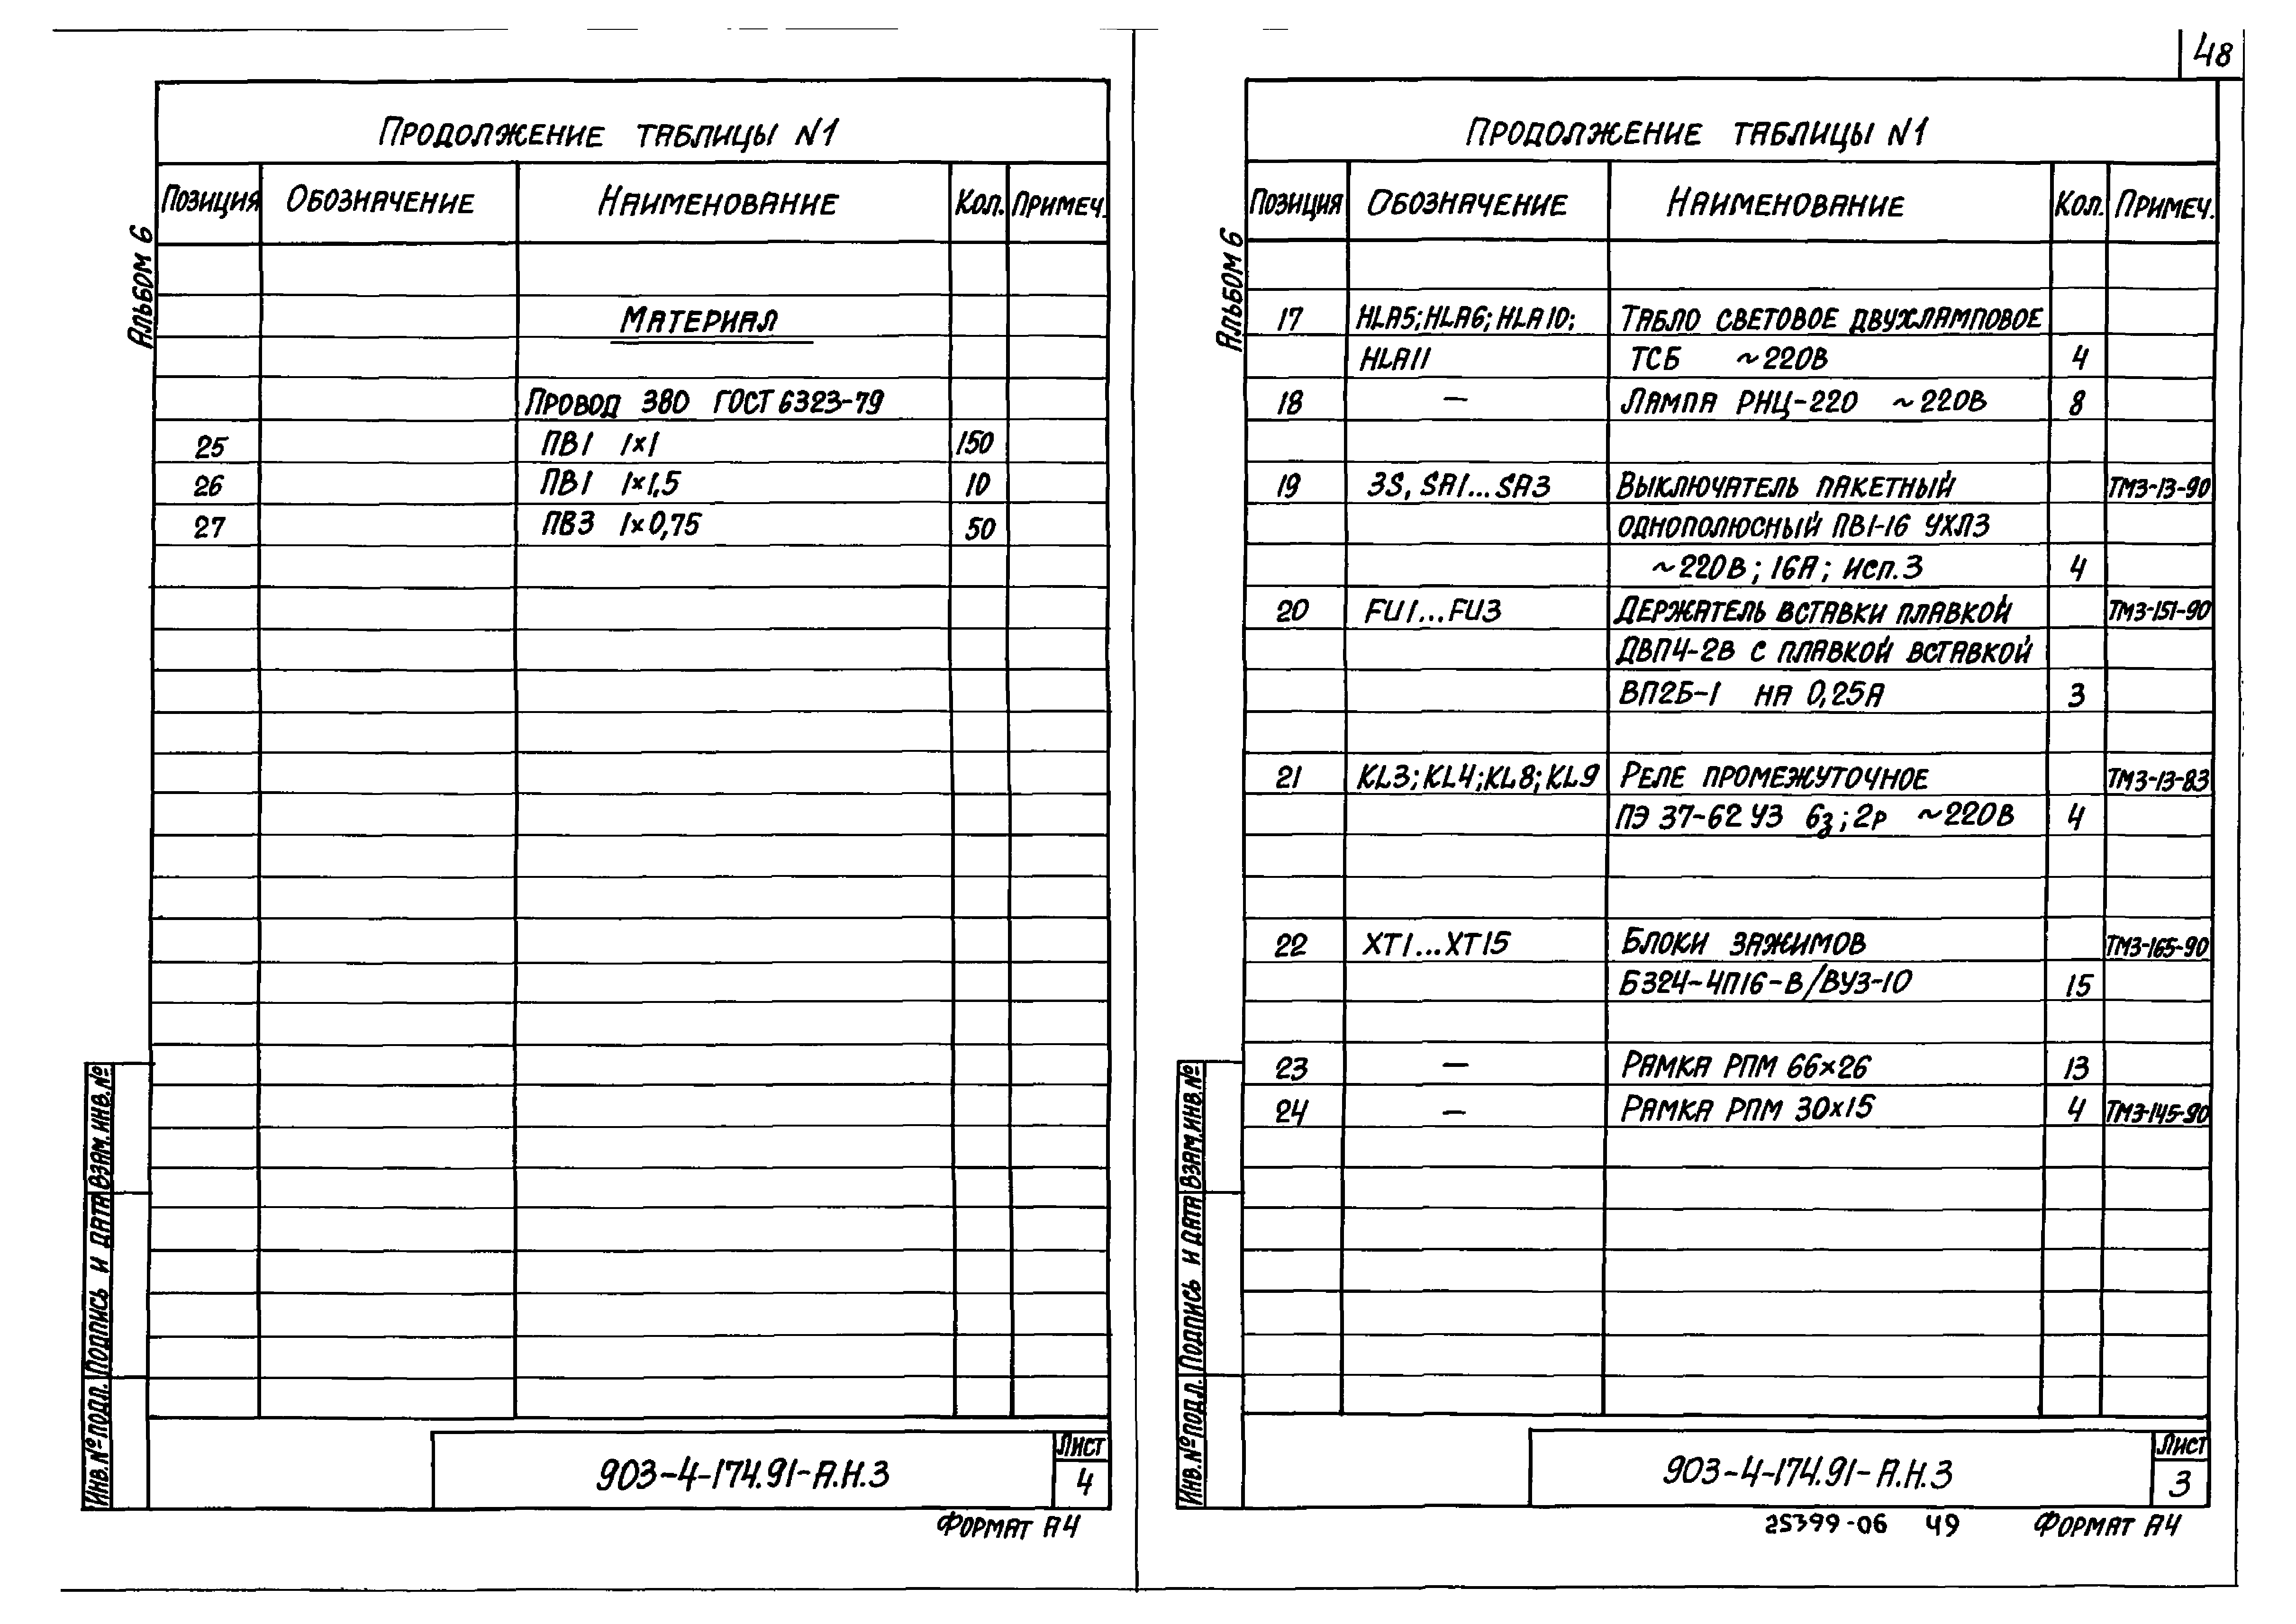 48
Продолжение таблицы N1
Позиция Обозначение Наименование Кол. Примеч.
Материал
Провод 380 ГОСТ 6323-79
25 ПВ1 1×1 150
26 ПВ1 1×1,5 10
27 ПВ3 1×0,75 50
Альбом 6
Взам.инв.№
Подпись и дата
Инв.№подл.
903-4-174.91-А.Н.3
Лист
4
Формат А4
Продолжение таблицы N1
Позиция Обозначение Наименование Кол. Примеч.
17 HLA5; HLA6; HLA10; Табло световое двухламповое
HLA11 ТСБ ~220В 4
18 — Лампа РНЦ-220 ~220В 8
19 3S, SA1...SA3 Выключатель пакетный ТМ3-13-90
однополюсный ПВ1-16 УХЛ3
~220В; 16А; исп.3 4
20 FU1...FU3 Держатель вставки плавкой ТМ3-151-90
ДВП4-2В с плавкой вставкой
ВП2Б-1 на 0,25А 3
21 KL3; KL4; KL8; KL9 Реле промежуточное ТМ3-13-83
ПЭ 37-62 У3 6з; 2р ~220В 4
22 XT1...XT15 Блоки зажимов ТМ3-165-90
Б324-4П16-В/ВУ3-10 15
23 — Рамка РПМ 66×26 13
24 — Рамка РПМ 30×15 4 ТМ3-145-90
Альбом 6
Взам.инв.№
Подпись и дата
Инв.№подл.
903-4-174.91-А.Н.3
Лист
3
25399-06 49 Формат А4